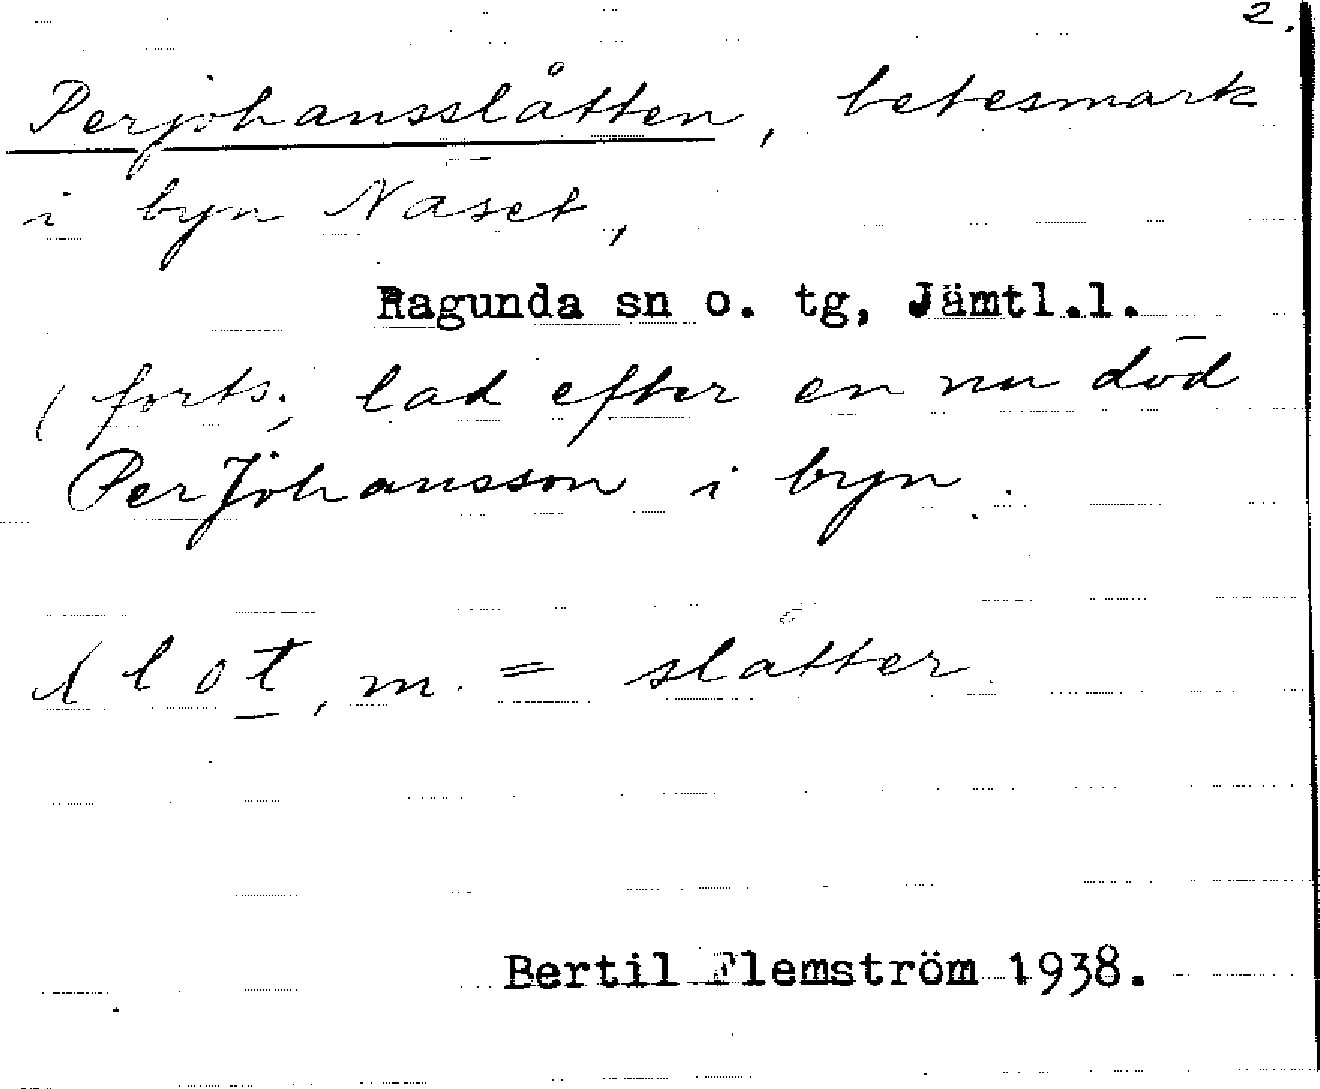 2.
Perjohansslåtten, betesmark
i byn Näset,
Ragunda sn o. tg, Jämtl.l.
(forts.; lad efter en nu död
Per Johansson i byn.
m. = slåtter
Bertil Flemström 1938.